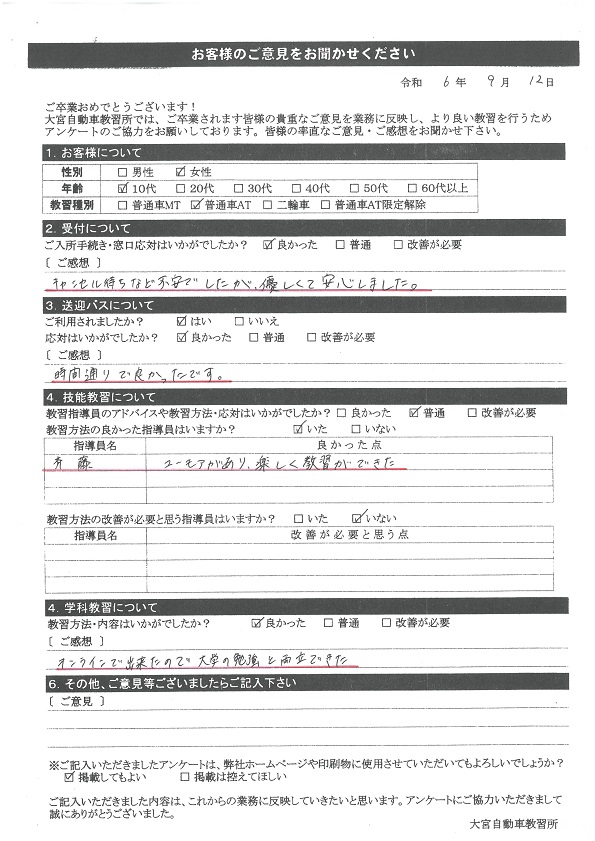 お客様のご意見をお聞かせください
令和 6 年 9 月 12 日
ご卒業おめでとうございます！
大宮自動車教習所では、ご卒業されます皆様の貴重なご意見を業務に反映し、より良い教習を行うため
アンケートのご協力をお願いしております。皆様の率直なご意見・ご感想をお聞かせ下さい。
1. お客様について
性別 □ 男性 ☑ 女性
年齢 ☑ 10代 □ 20代 □ 30代 □ 40代 □ 50代 □ 60代以上
教習種別 □ 普通車MT ☑ 普通車AT □ 二輪車 □ 普通車AT限定解除
2. 受付について
ご入所手続き・窓口応対はいかがでしたか？ ☑ 良かった □ 普通 □ 改善が必要
〔 ご感想 〕
キャンセル待ちなど不安でしたが、優しくて安心しました。
3. 送迎バスについて
ご利用されましたか？ ☑ はい □ いいえ
応対はいかがでしたか？ ☑ 良かった □ 普通 □ 改善が必要
〔 ご感想 〕
時間通りで良かったです。
4. 技能教習について
教習指導員のアドバイスや教習方法・応対はいかがでしたか？ □ 良かった ☑ 普通 □ 改善が必要
教習方法の良かった指導員はいますか？ ☑ いた □ いない
指導員名 良かった点
斉藤 ユーモアがあり、楽しく教習ができた
教習方法の改善が必要と思う指導員はいますか？ □ いた ☑ いない
指導員名 改善が必要と思う点
4. 学科教習について
教習方法・内容はいかがでしたか？ ☑ 良かった □ 普通 □ 改善が必要
〔 ご感想 〕
オンラインで出来たので大学の勉強と両立できた
6. その他、ご意見等ございましたらご記入下さい
〔 ご意見 〕
※ご記入いただきましたアンケートは、弊社ホームページや印刷物に使用させていただいてもよろしいでしょうか？
☑ 掲載してもよい □ 掲載は控えてほしい
ご記入いただきました内容は、これからの業務に反映していきたいと思います。アンケートにご協力いただきまして
誠にありがとうございました。
大宮自動車教習所